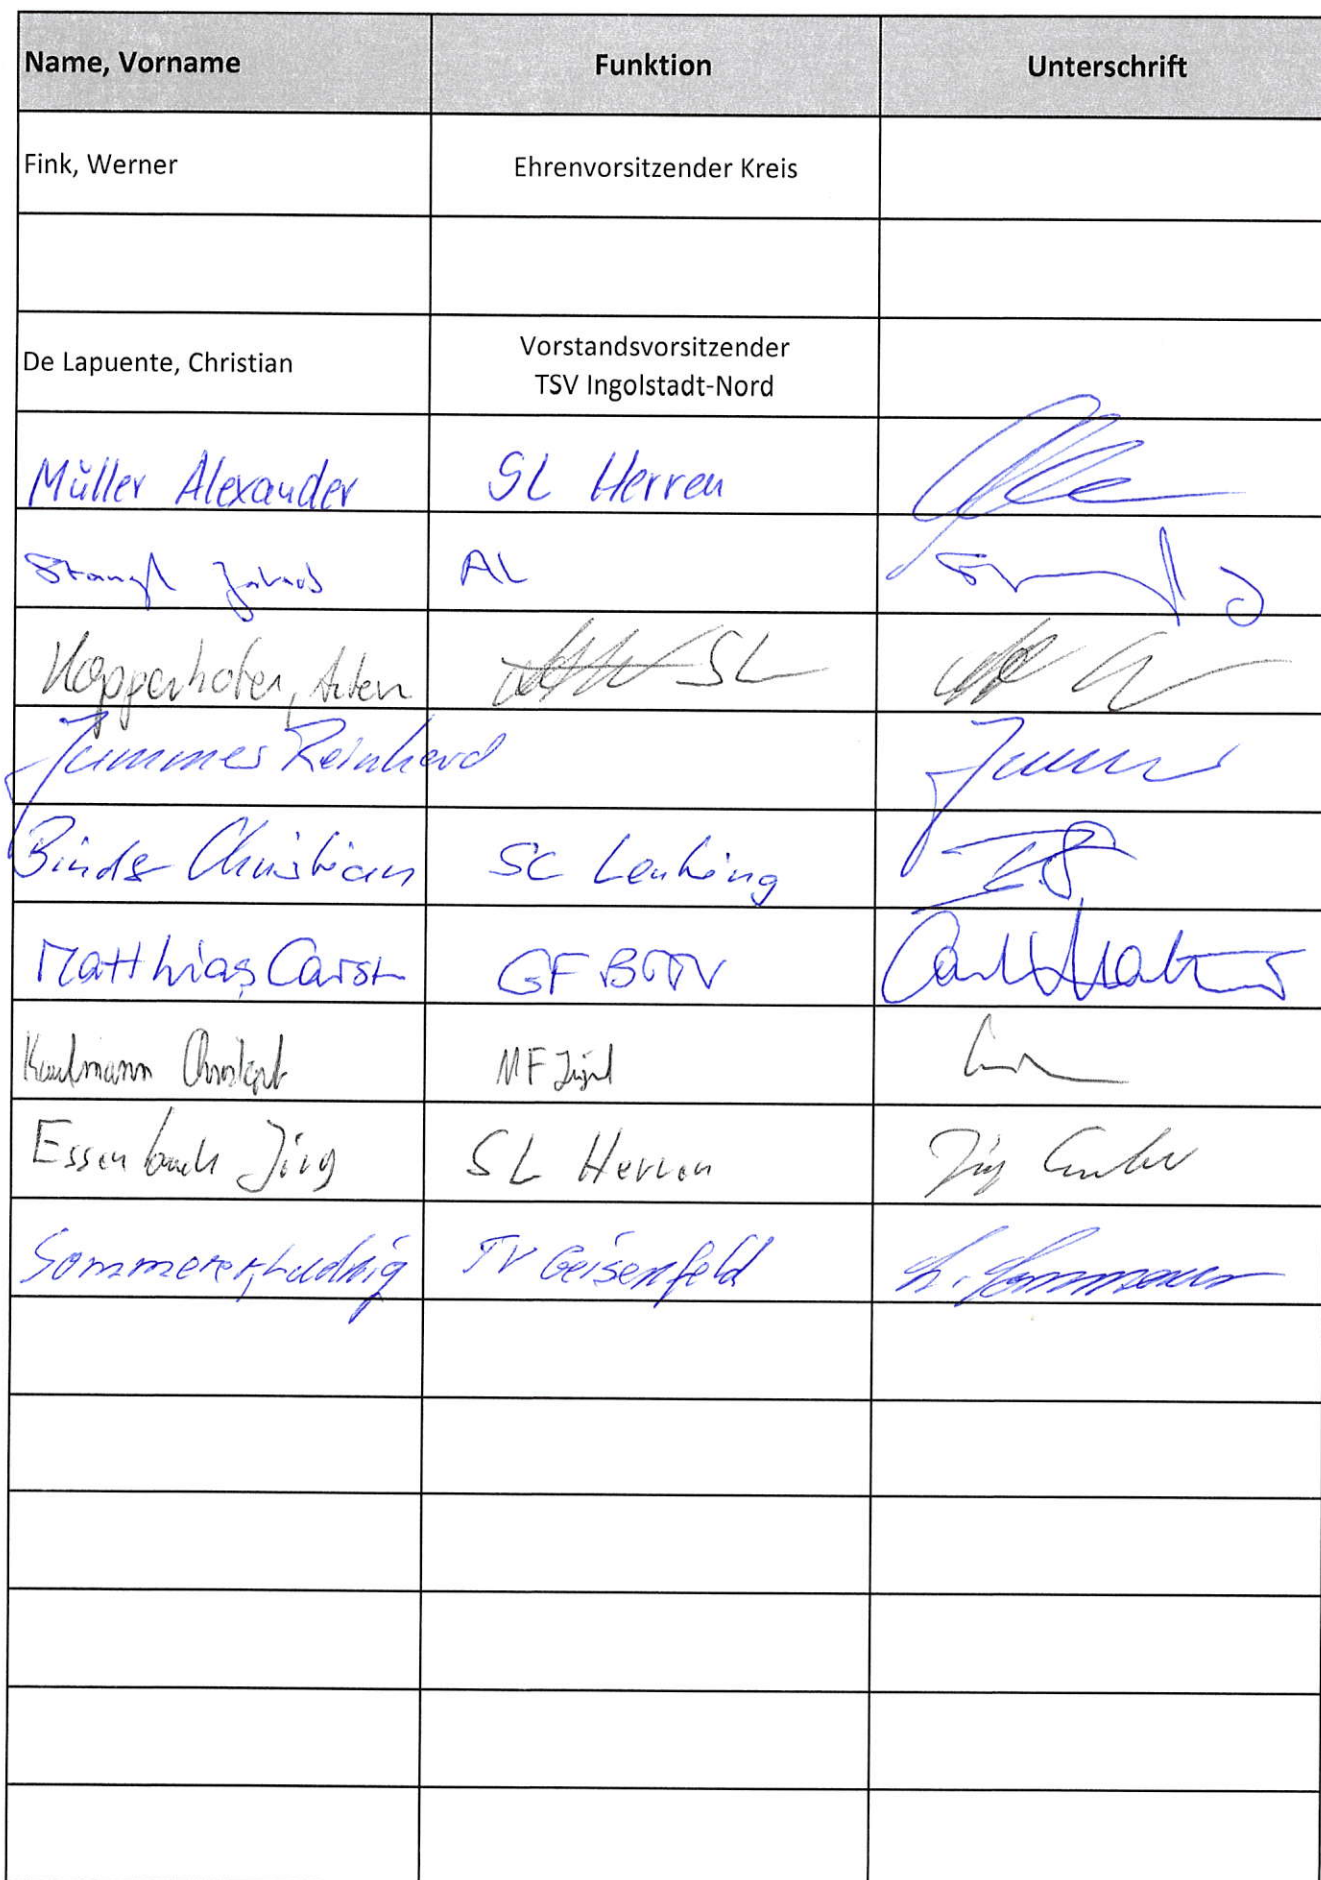 Name, Vorname Funktion Unterschrift
Fink, Werner Ehrenvorsitzender Kreis
De Lapuente, Christian Vorstandsvorsitzender
TSV Ingolstadt-Nord
Müller Alexander SL Herren
Stangl AL
SL
Reinhard
Binder Christian SC Lenting
Matthias Carst GF BTTV
Christoph MF
Essenbach Jörg SL Herren
Sommerer, Ludwig TV Geisenfeld L. Sommerer